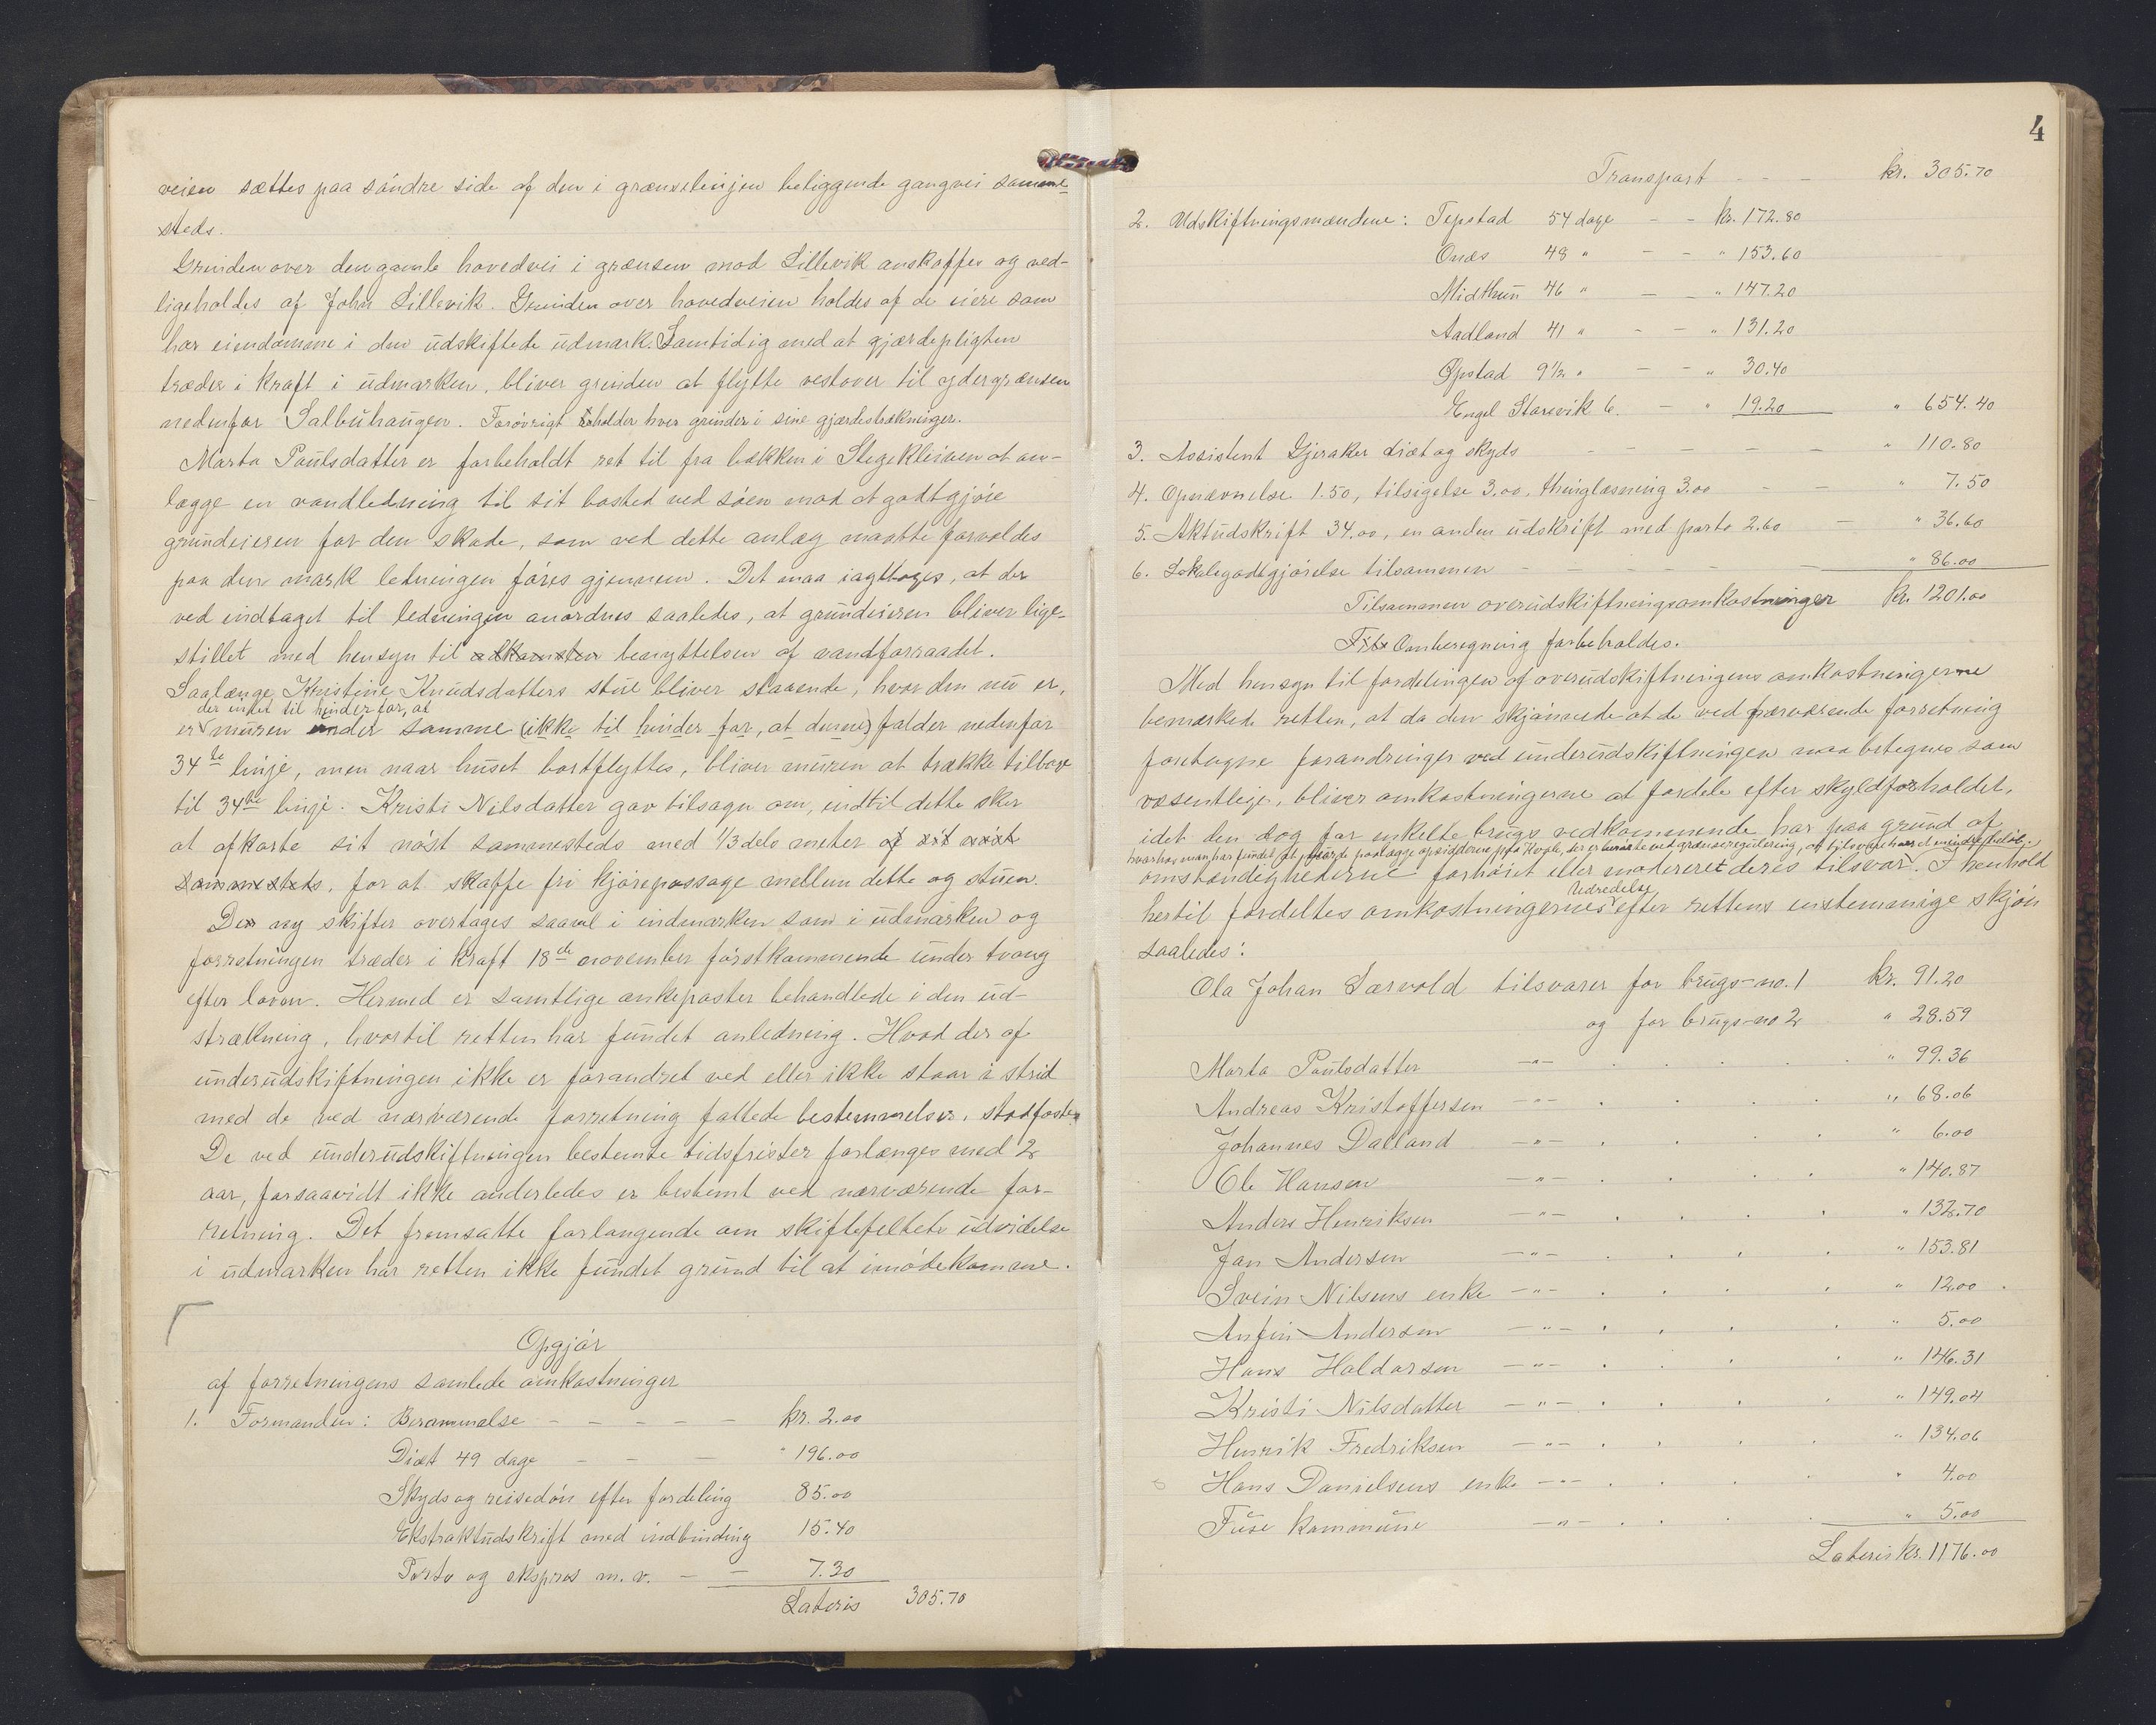 veien sættes paa søndre side af den i grænselinjen beliggende gangvei samme-
steds.
Grinden over den gamle hovedvei i grænsen mod Lillevik anskaffes og ved-
ligeholdes af John Lillevik. Grinden over hovedveien holdes af de eiere som
har eiendomme i den udskiftede udmark. Samtidig med at gjærdepligten
træder i kraft i udmarken, bliver grinden at flytte vestover til ydergrænsen
nedenfor Salbuhaugen. Forøvrigt holder hver grinder i sine gjærdestrækninger.
Marta Paulsdatter er forbeholdt ret til fra bækken i Stegekleiven at an-
lægge en vandledning til sit bosted ved søen mod at godtgjøre
grundeieren for den skade, som ved dette anlæg maatte forvoldes
paa den mark ledningen føres gjennem. Det maa iagttages, at der
ved indtaget til ledningen anordnes saaledes, at grundeieren bliver lige-
stillet med hensyn til adkomsten benyttelsen af vandforraadet.
Saalænge Kristine Knudsdatters stue bliver staaende, hvor den nu er,
der intet til hinder for, at
er muren under samme (ikke til hinder for, at denne) falder nedenfor
34te linje, men naar huset bortflyttes, bliver muren at trække tilbage
til 34te linje. Kristi Nilsdatter gav tilsagn om, indtil dette sker
at afkorte sit nøst sammesteds med 1/3 dels meter af sit nøst
sammesteds, for at skaffe fri kjørepassage mellem dette og stuen.
De ny skifter overtages saavel i indmarken som i udmarken og
forretningen træder i kraft 18de november førstkommende under tvang
efter loven. Hermed er samtlige ankeposter behandlede i den ud-
strækning, hvortil retten har fundet anledning. Hvad der af
underudskiftningen ikke er forandret ved eller ikke staar i strid
med de ved nærværende forretning fattede bestemmelser, stadfæstes
De ved underudskiftningen bestemte tidsfrister forlænges med 2
aar, forsaavidt ikke anderledes er bestemt ved nærværende for-
retning. Det fremsatte forlangende om skiftefeltets udvidelse
i udmarken har retten ikke fundet grund til at imødekomme.
Opgjør
af forretningens samlede omkostninger
1. Formanden: Berammelse – – – – – kr. 2.00
Diæt 49 dage – – – " 196.00
Skyds og reisedøn efter fordeling 85.00
Ekstraktudskrift med indbinding 15.40
Porto og ekspres m. v. – – 7.30
Lateris 305.70
4
Transport – – – kr. 305.70
2. Udskiftningsmændene: Tepstad 54 dage – – kr. 172.80
Onæs 48 " – – " 153.60
Midthun 46 " – – " 147.20
Aadland 41 " – – " 131.20
Øpstad 9½ " – – " 30.40
Engel Storevik 6. – " 19.20 " 654.40
3. Assistent Gjeraker diæt og skyds – – – – – – " 110.80
4. Opnævnelse 1.50, tilsigelse 3.00, thinglæsning 3.00 – – " 7.50
5. Aktudskrift 34.00, en anden udskrift med porto 2.60 – " 36.60
6. Lokalegodtgjørelse tilsammen – – – – – – " 86.00
Tilsammen overudskiftningsomkostninger kr. 1201.00
Omberegning forbeholdes.
Med hensyn til fordelingen af overudskiftningens omkostningerne
bemærkede retten, at da den skjønnede at de ved nærværende forretning
foretagne forandringer ved underudskiftningen maa betegnes som
væsentlige, bliver omkostningerne at fordele efter skyldforholdet,
idet den dog for enkelte brugs vedkommende har paa grund af
hvorhos man har fundet at burde paalægge opsidderne paa Hople, der er berørte ved grænseregulering, at tilsvare et mindre beløb.
omstændighederne forhøiet eller modereret deres tilsvar. I henhold
Udredelse
hertil fordeltes omkostningernes efter rettens enstemmige skjøn
saaledes:
Ola Johan Særvold tilsvarer for brugs-no. 1 kr. 91.20
og for brugs-no 2 " 28.59
Marta Paulsdatter –"– " 99.36
Andreas Kristoffersen –"– " 68.06
Johannes Dalland –"– " 6.00
Ole Hansen –"– " 140.87
Anders Henriksen –"– " 132.70
Jan Andersen –"– " 153.81
Svein Nilsens enke –"– " 12.00
Anfin Andersen –"– " 5.00
Hans Haldorsen –"– " 146.31
Kristi Nilsdatter –"– " 149.04
Henrik Fredriksen –"– " 134.06
Hans Danielsens enke –"– " 4.00
Fuse kommune –"– " 5.00
Lateris kr. 1176.00